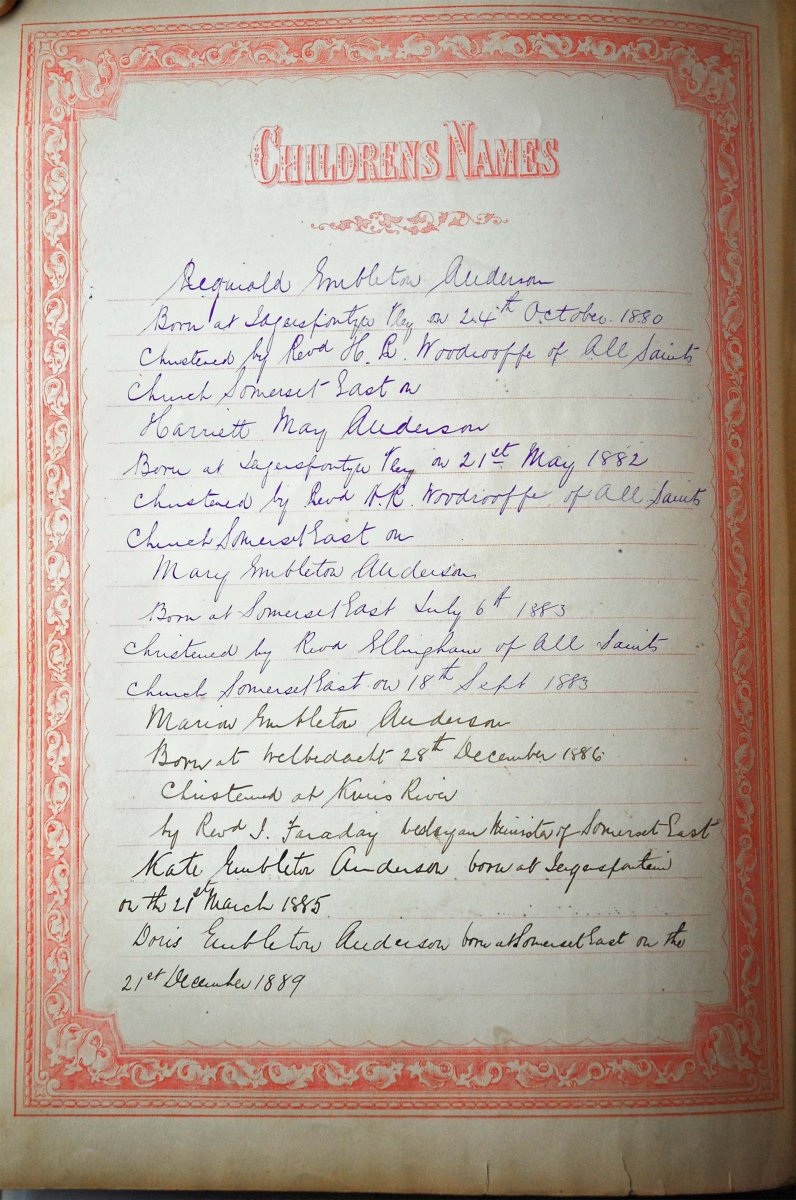 CHILDRENS NAMES
Reginald Embleton Anderson
Born at Vley on 24th October 1880
Christened by Revd H. R. Woodrooffe of All Saints
Church Somerset East on
Harriett May Anderson
Born at Vley on 21st May 1882
Christened by Revd H.R. Woodrooffe of All Saints
Church Somerset East on
Mary Embleton Anderson
Born at Somerset East July 6th 1883
Christened by Revd Ellingham of All Saints
Church Somerset East on 18th Sept 1883
Marion Embleton Anderson
Born at Welbedacht 28th December 1886
Christened at River
by Revd J. Faraday Wesleyan Minister of Somerset East
Kate Embleton Anderson born at
on th 21st March 1885
Doris Embleton Anderson born at Somerset East on the
21st December 1889